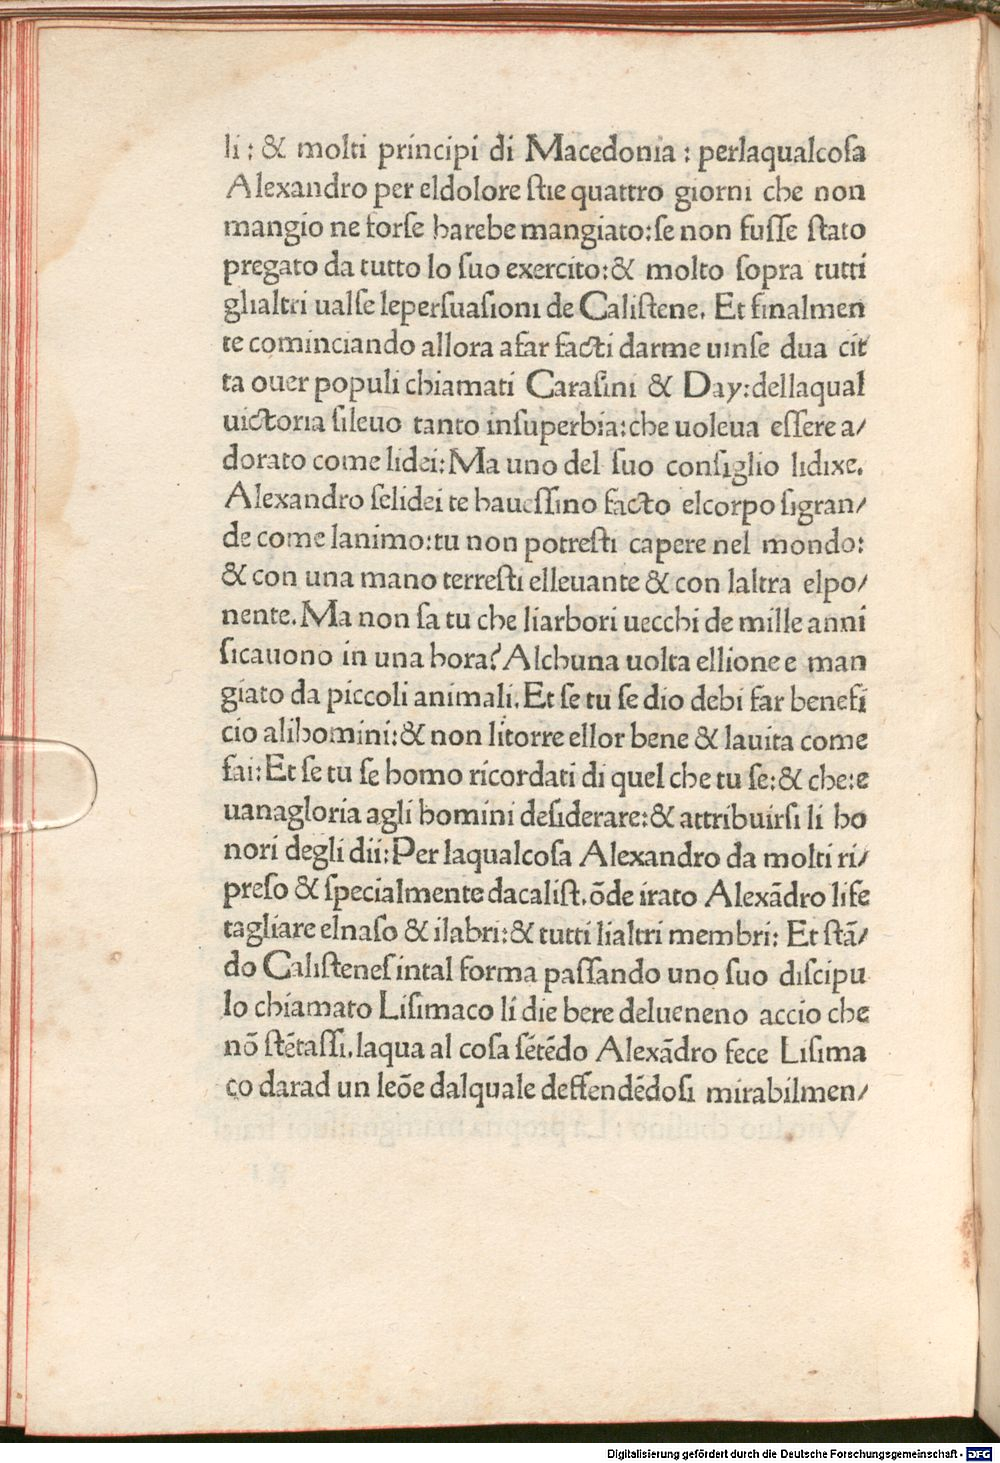 li: & molti principi di Macedonia: perlaqualcoſa
Alexandro per eldolore ſtie quattro giorni che non
mangio ne forſe harebe mangiato:ſe non fuſſe ſtato
pregato da tutto lo ſuo exercito:& molto ſopra tutti
glialtri ualſe leperſuaſioni de Caliſtene. Et finalmen
te cominciando allora afar facti darme uinſe dua cit
ta ouer populi chiamati Caraſini & Day:dellaqual
uictoria ſileuo tanto inſuperbia:che uoleua eſſere a/
dorato come lidei:Ma uno del ſuo conſiglio lidixe.
Alexandro ſelidei te haueſſino facto elcorpo ſigran/
de come lanimo:tu non potreſti capere nel mondo:
& con una mano terreſti elleuante & con laltra elpo/
nente.Ma non ſa tu che liarbori uecchi de mille anni
ſicauono in una hora?Alchuna uolta ellione e man
giato da piccoli animali.Et ſe tu ſe dio debi far benefi
cio alihomini:& non litorre ellor bene & lauita come
fai:Et ſe tu ſe homo ricordati di quel che tu ſe:& che:e
uanagloria agli homini deſiderare:& attribuirſi li ho
nori degli dii:Per laqualcoſa Alexandro da molti ri/
preſo & ſpecialmente dacaliſt.õde irato Alexãdro liſe
tagliare elnaſo & ilabri:& tutti lialtri membri: Et ſtã/
do Caliſteneſ intal forma paſſando uno ſuo diſcipu
lo chiamato Liſimaco li die bere delueneno accio che
nõ ſtẽtaſſi.laqua al coſa ſẽtẽdo Alexãdro fece Liſima
co darad un leõe dalquale deffendẽdoſi mirabilmen/
Digitalisierung gefördert durch die Deutsche Forschungsgemeinschaft - DFG